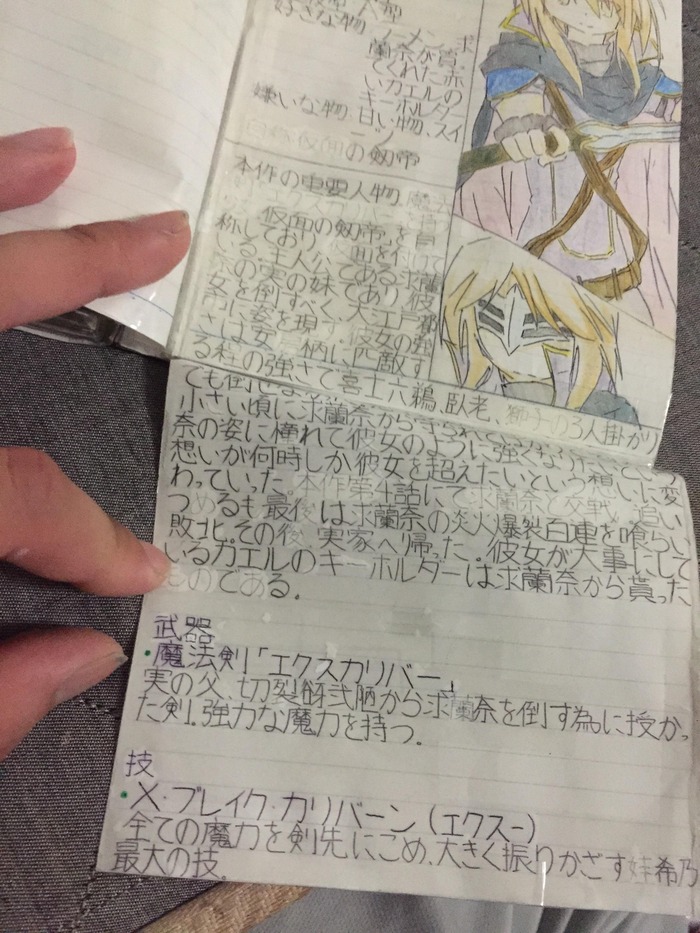 好きな物 ラーメン、求
蘭奈が貰
てくれた赤
いカエルの
キーホルダー
嫌いな物 甘い物、スイ
ーツ
自称 仮面の剱帝
本作の重要人物
仮面の剱帝」を自
称しており
いる。主人公である求蘭
奈の実の妹であり、彼
女を倒すべく、大江戸都
市に姿を現す。彼女の強
さは
る程の強さで喜士六鵜、臥老、獅子の3人掛かり
ても
小さい頃に求蘭奈から
奈の姿に憧れて彼女のように強くなりたいという
想いが何時しか彼女を超えたいという想いに変
わっていった。本作第4話にて求蘭奈と交戦。追い
つめるも最後は求蘭奈の炎火爆裂百連を喰らい
敗北。その後、実家へ帰った。彼女が大事にして
いるカエルのキーホルダーは求蘭奈から貰った
ものである。
武器
・魔法剣「エクスカリバー」
実の父、切裂 から求蘭奈を倒す為に授かっ
た剣。強力な魔力を持つ。
技
・X・ブレイク・カリバーン(エクスー)
全ての魔力を剣先にこめ、大きく振りかざす娃希乃
最大の技。